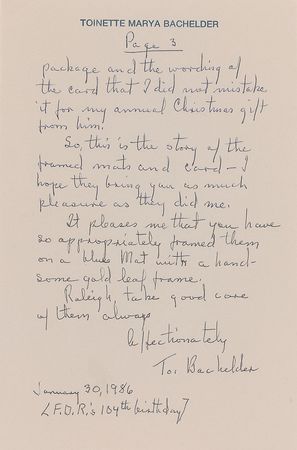 TOINETTE MARYA BACHELDER
Page 3
package and the wording of
the card that I did not mistake
it for my annual Christmas gift
from him.
So, this is the story of the
framed mats and card – I
hope they bring you as much
pleasure as they did me.
It pleases me that you have
so appropriately framed them
on a blue Mat with a hand-
some gold leaf frame.
Raleigh, take good care
of them always
Affectionately
Toi Bachelder
January 30, 1986
[F.D.R.'s 104th birthday]